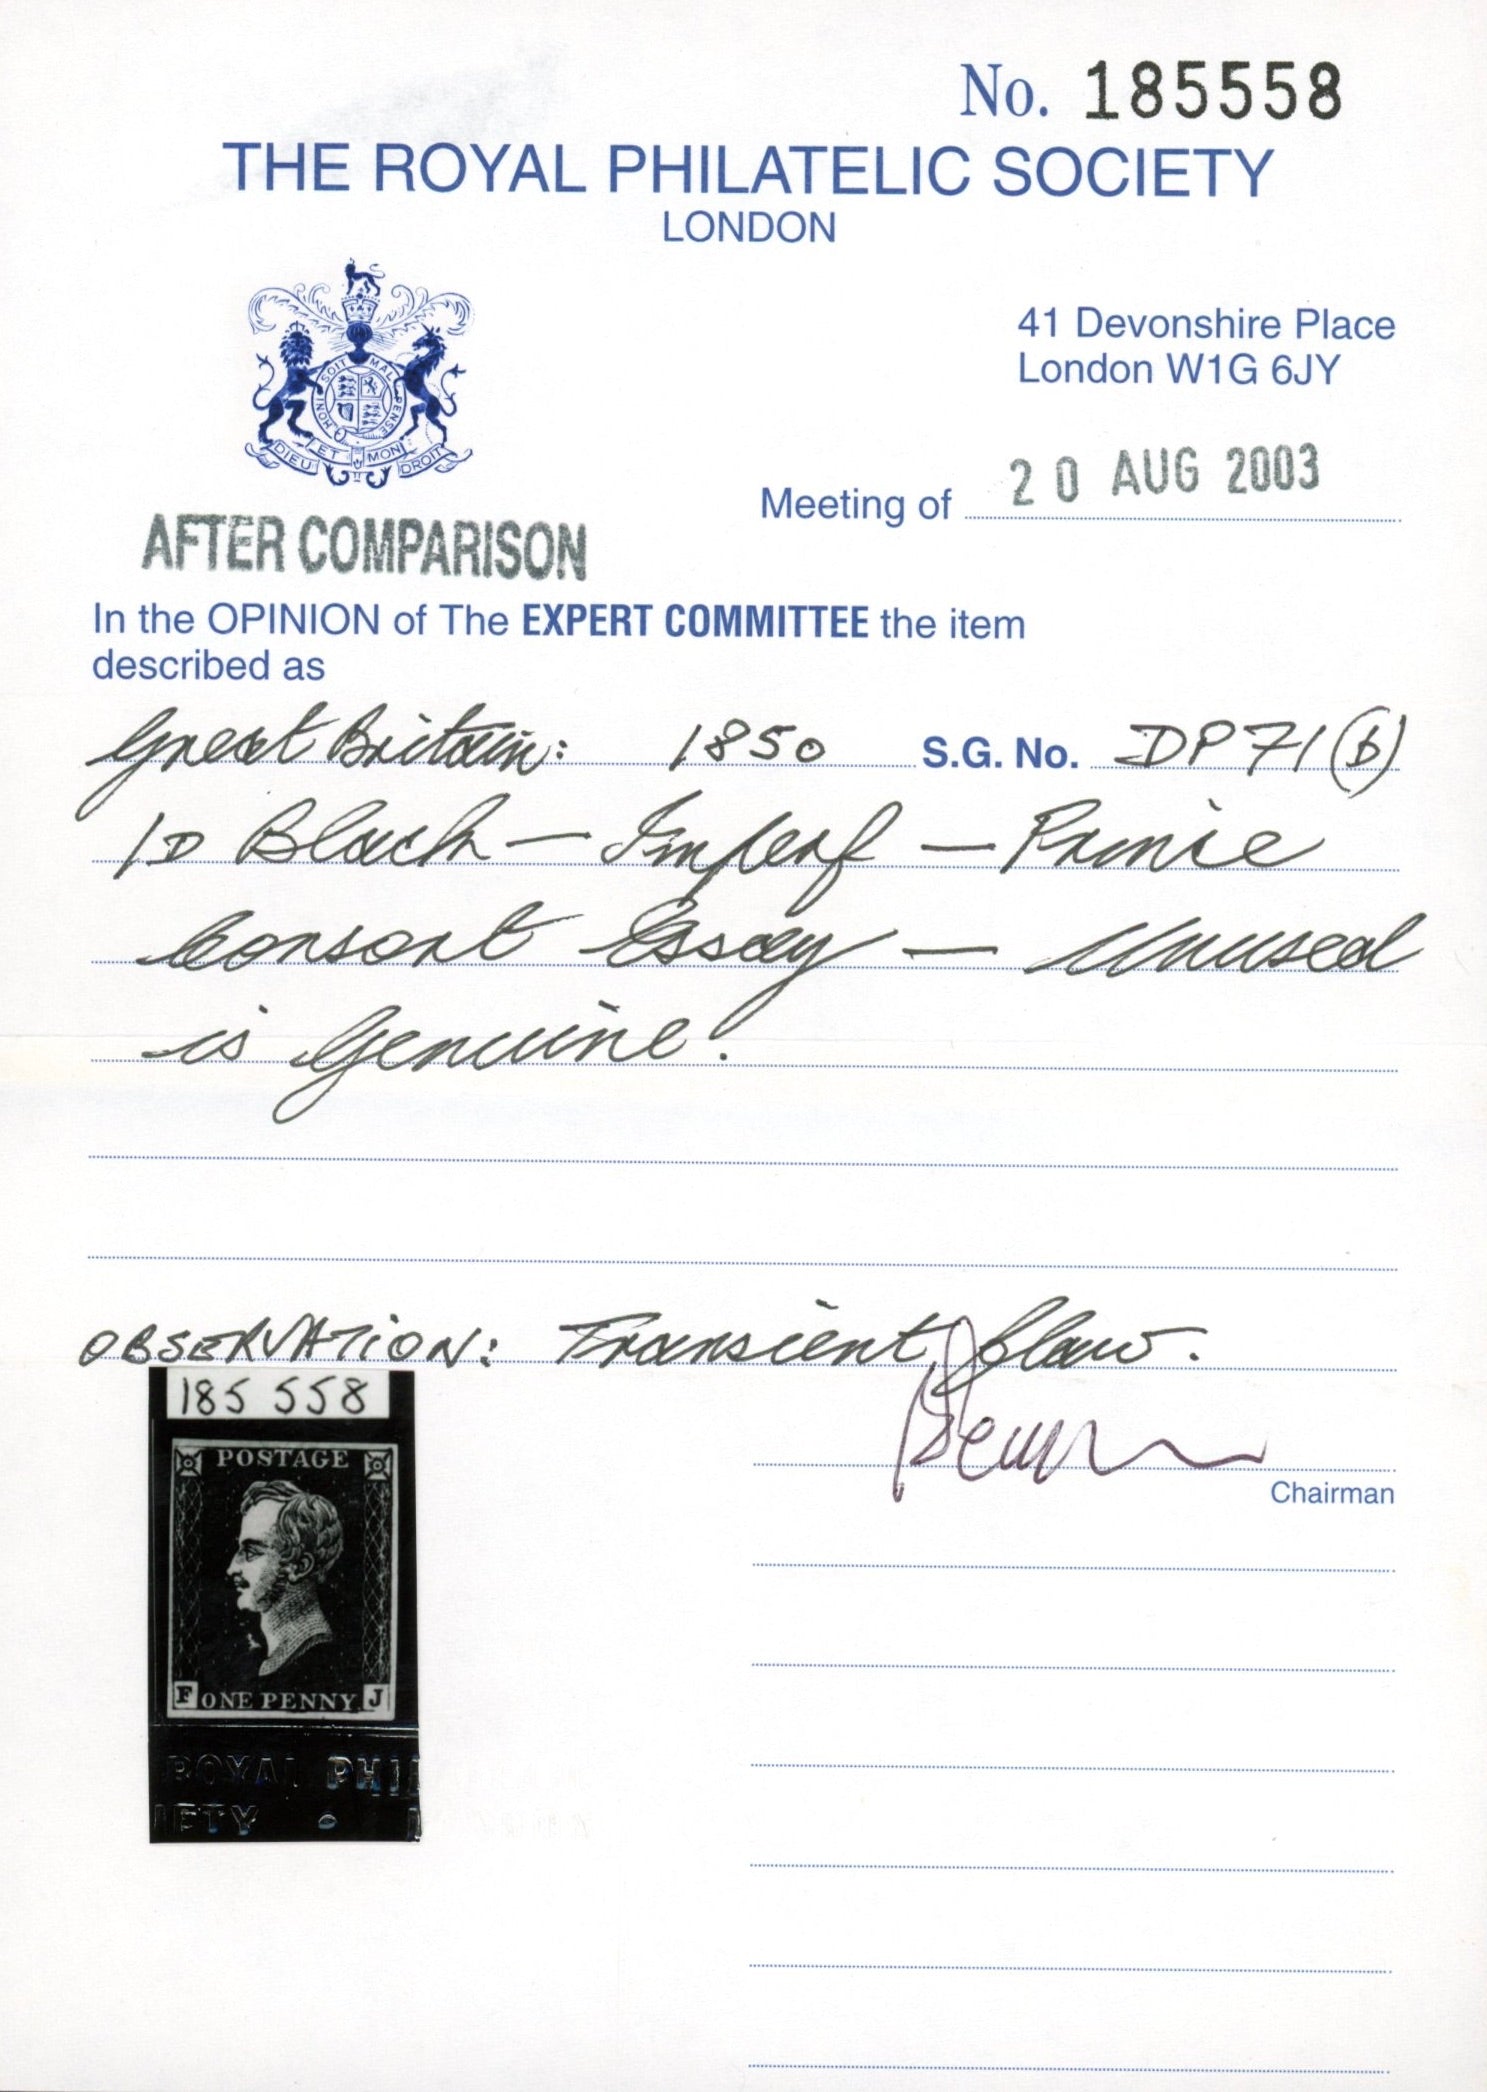 No. 185558
THE ROYAL PHILATELIC SOCIETY
LONDON
41 Devonshire Place
London W1G 6JY
HONI SOIT MAL PENSE
DIEU ET MON DROIT
Meeting of 20 AUG 2003
AFTER COMPARISON
In the OPINION of The EXPERT COMMITTEE the item
described as
Great Britain: 1850 S.G. No. DP71(b)
1D Black – Imperf – Prince
Consort Essay – Unused
is Genuine.
OBSERVATION: Transient flaw.
Chairman
185 558
POSTAGE
F ONE PENNY J
ROYAL PHIL
IETY